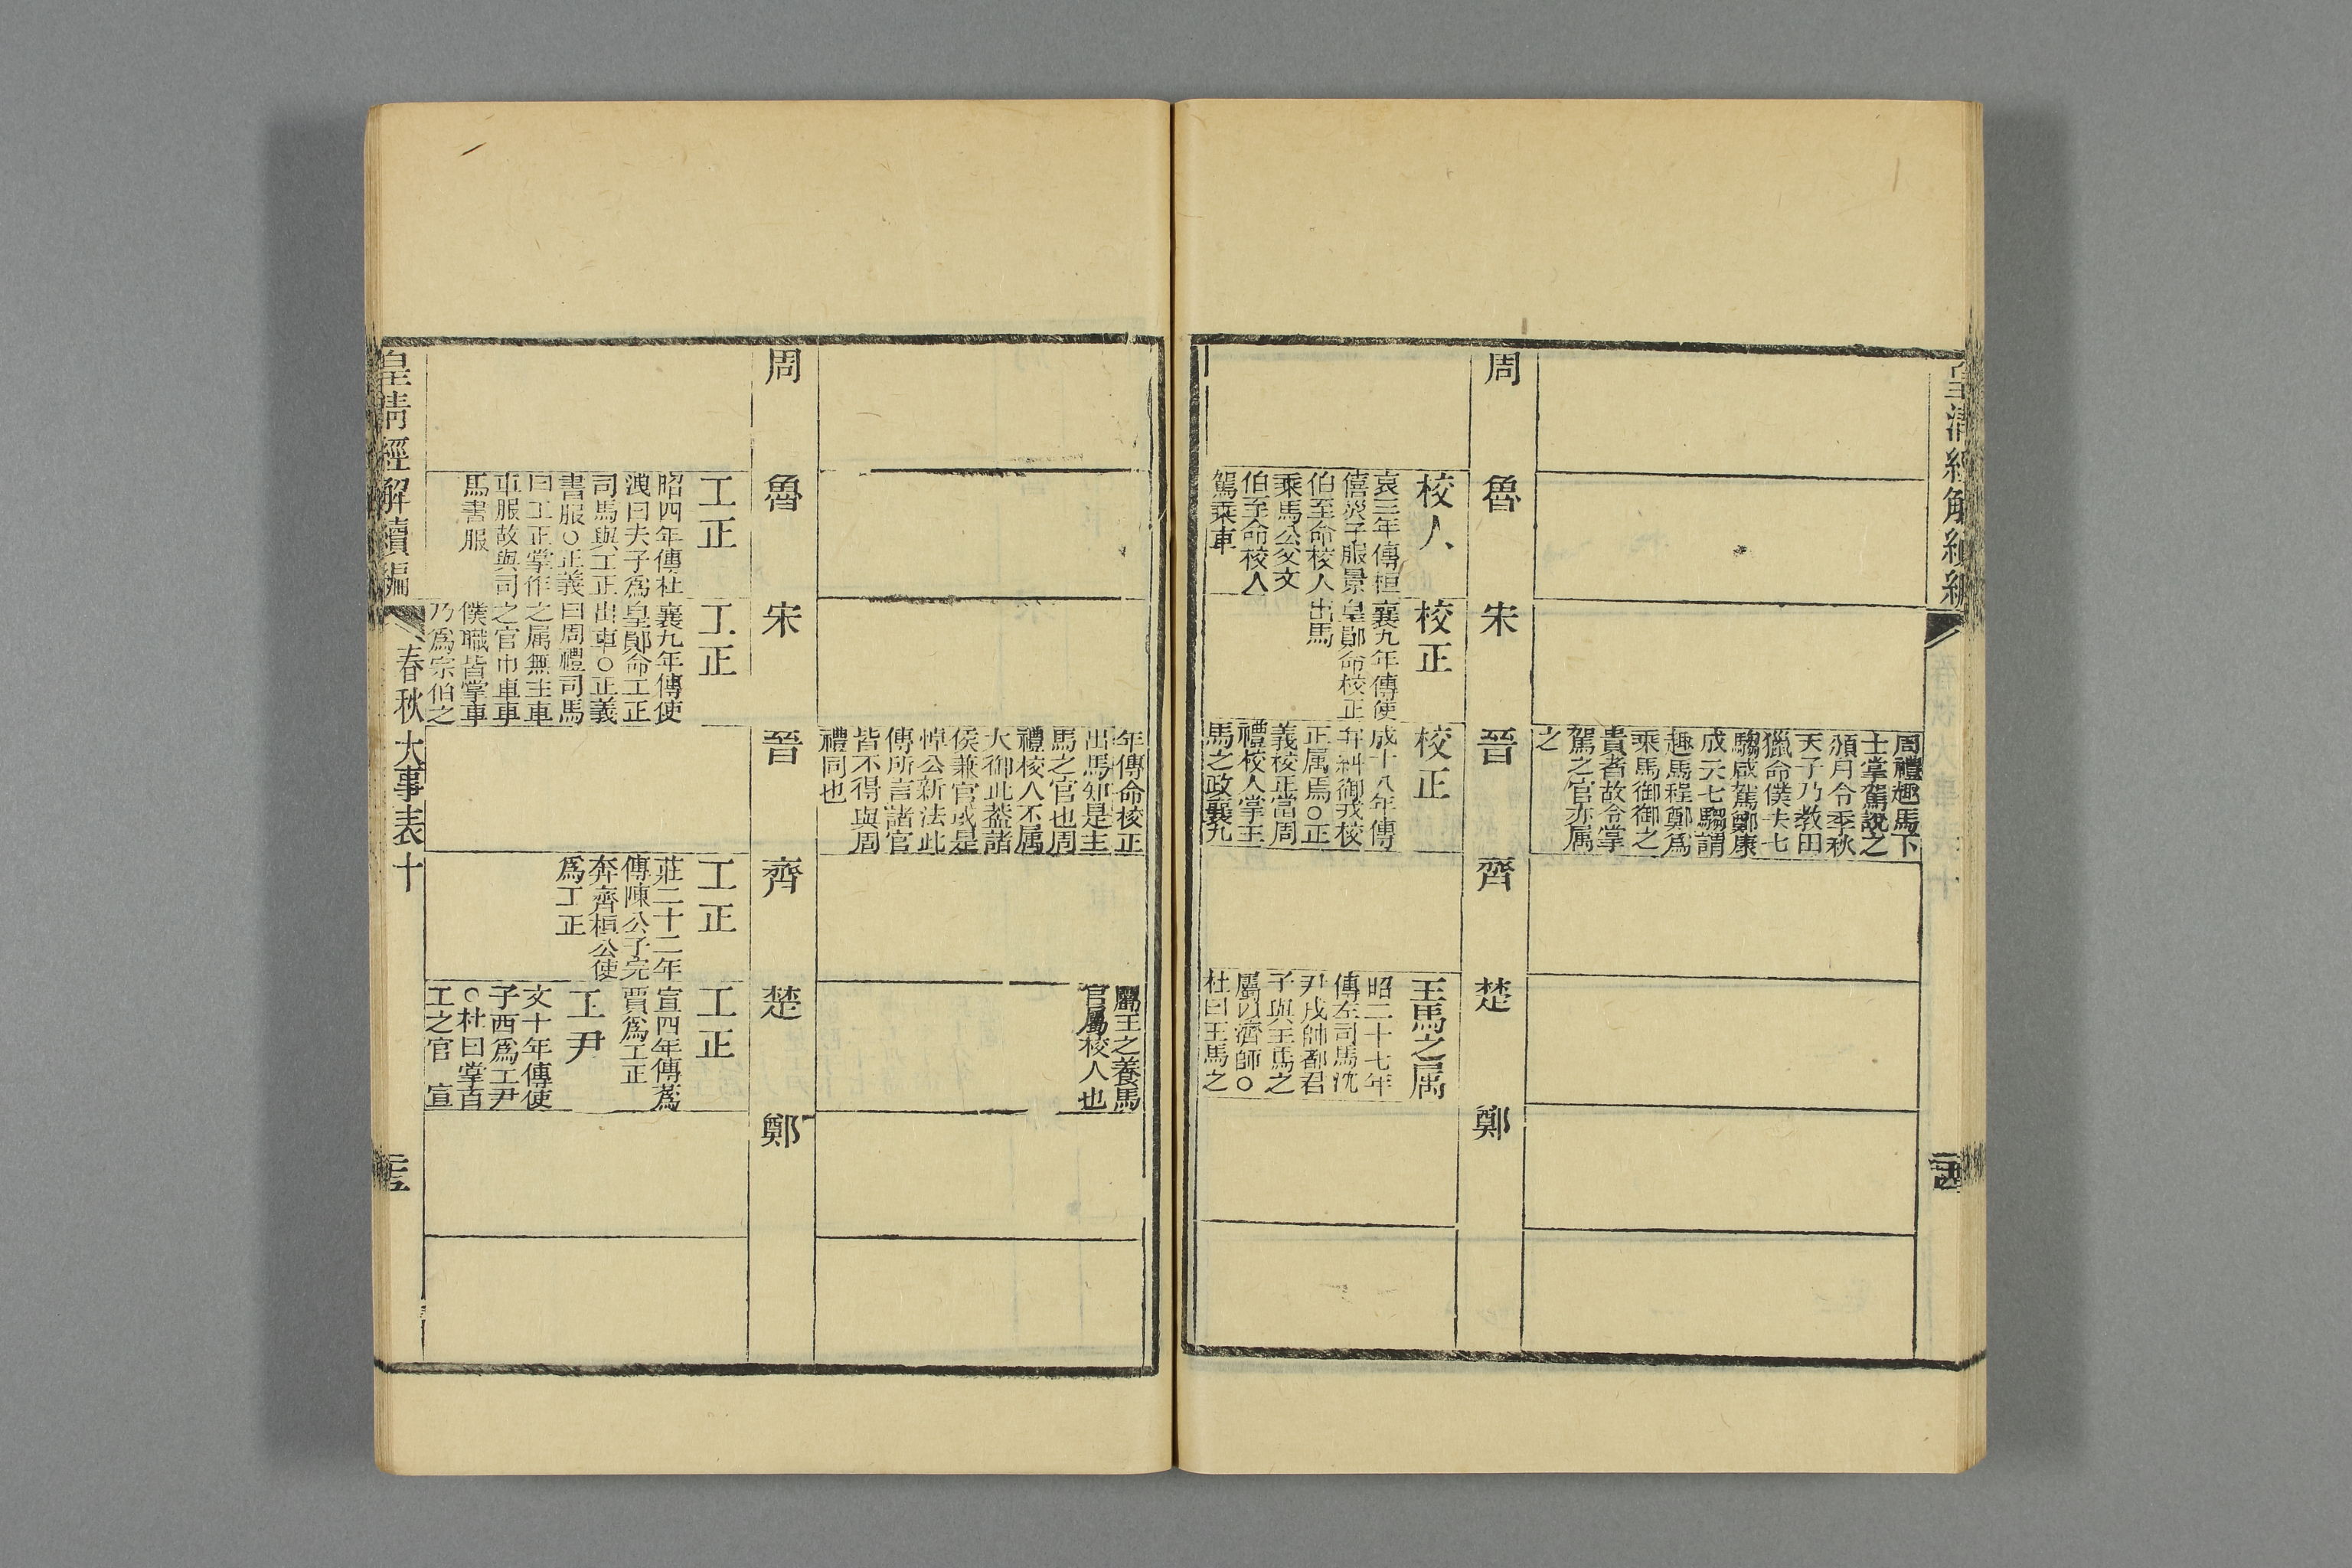 皇清經解續編
周禮趣馬下
士掌駕說之
頒月令季秋
天子乃教田
獵命僕夫七
騶咸駕鄭康
成云七騶謂
趣馬程鄭爲
乘馬御御之
貴者故令掌
駕之官亦属
之
周
魯
宋
晉
齊
楚
鄭
校人
哀三年傳桓
僖災子服景
伯至命校人
乘馬公父文
伯至命校人
駕乘車
校正
襄九年傳使
皇鄖命校正
出馬
校正
成十八年傳
弁糾御戎校
正属焉○正
義校正當周
禮校人掌王
馬之政襄九
王馬之属
昭二十七年
傳左司馬沈
尹戌帥都君
子與王馬之
屬以濟師○
杜曰王馬之
年傳命校正
出馬知是主
馬之官也周
禮校人不属
大御此葢諸
侯兼官或是
悼公新法此
傳所言諸官
皆不得與周
禮同也
屬王之養馬
官屬校人也
周
魯
宋
晉
齊
楚
鄭
工正
昭四年傳杜
洩曰夫子爲
司馬與工正
書服○正義
曰工正掌作
車服故與司
馬書服
工正
襄九年傳使
皇鄖命工正
出車○正義
曰周禮司馬
之属無主車
之官巾車車
僕職皆掌車
乃爲宗伯之
工正
莊二十二年
傳陳公子完
奔齊桓公使
爲工正
工正
宣四年傳蔿
賈爲工正
工尹
文十年傳使
子西爲工尹
○杜曰掌百
工之官 宣
皇清經解續編
春秋大事表十